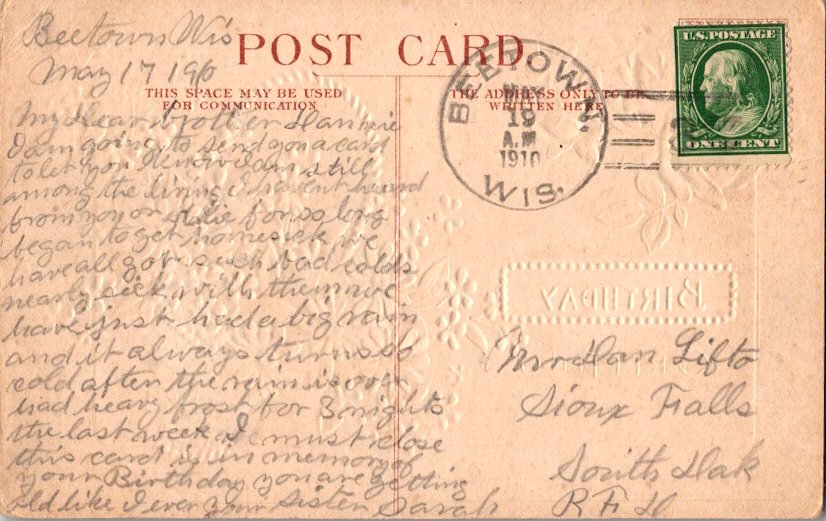 Beetown Wis
May 17 1910
POST CARD
THIS SPACE MAY BE USED
FOR COMMUNICATION
THE ADDRESS ONLY TO BE
WRITTEN HERE
My Dear brother Dan
I am going to send you a card
to let you know I am still
among the living I havent heard
from you or for so long
began to get homesick we
have all got such bad colds
nearly sick with them we
have just had a big rain
and it always turns so
cold after the rain is over
had heavy frost for 3 nights
the last week I must close
this card is in memory of
your Birthday you are getting
old like I ever your sister Sarah
BEETOWN
19
A.M
1910
WIS.
U.S. POSTAGE
ONE CENT
BIRTHDAY
Mr Dan Lifto
Sioux Falls
South Dak
R F D